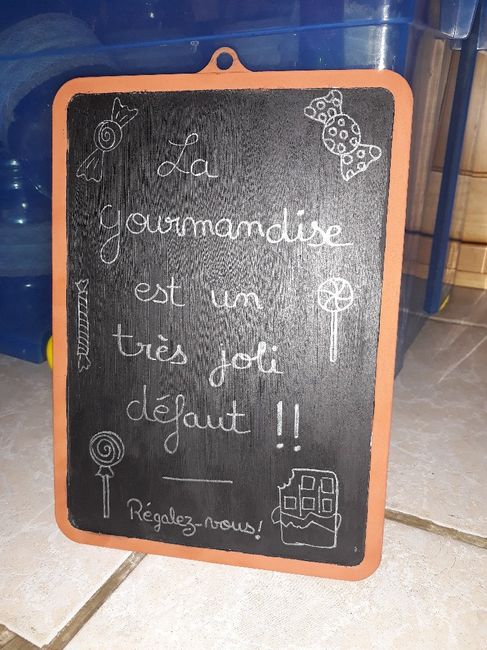 La
gourmandise
est un
très joli
défaut !!
Régalez-vous!